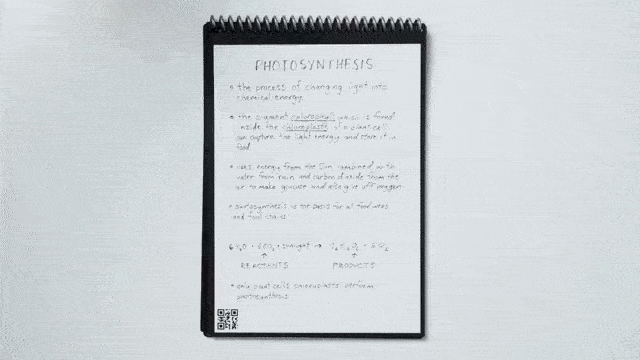 PHOTOSYNTHESIS
• the process of changing light into
chemical energy.
• the pigment chlorophyll which is found
inside the chloroplasts of a plant cell
can capture the light energy and store it in
food
• uses energy from the Sun combined with
water from rain and carbon dioxide from the
air to make glucose and also give off oxygen
• photosynthesis is the basis for all food webs
and food chains
6H₂O + 6CO₂ + sunlight → C₆H₁₂O₆ + 6O₂
↑ ↑
REACTANTS PRODUCTS
• only plant cells chloroplasts perform
photosynthesis